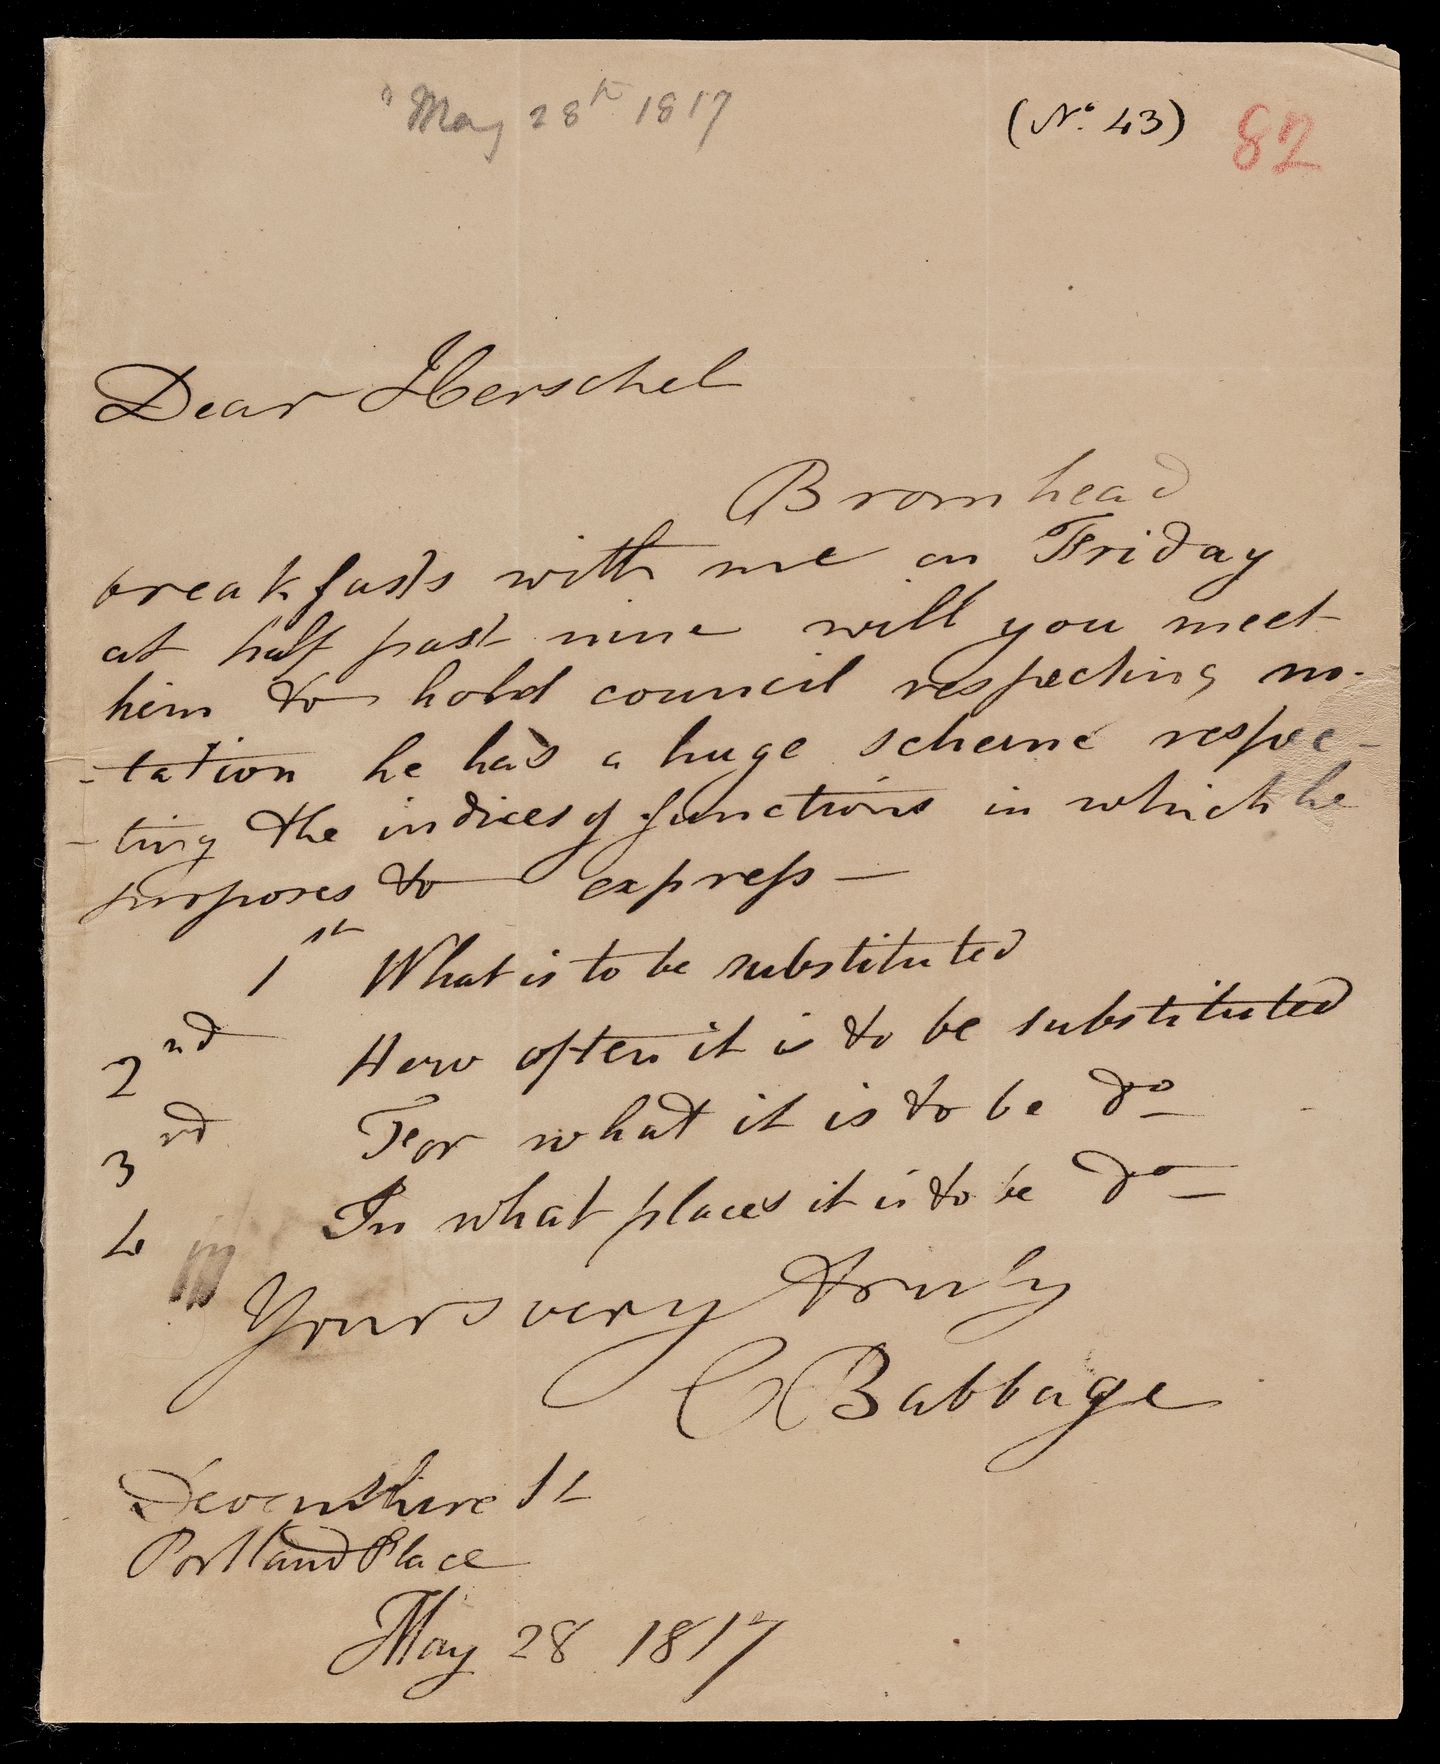 May 28th 1817
(No. 43) 82
Dear Herschel
Bromhead
breakfasts with me on Friday
at half past nine will you meet
him to hold council respecting no-
-tation he has a huge scheme respec-
-ting the indices of functions in which he
purposes to express —
1st What is to be substituted
2nd How often it is to be substituted
3rd For what it is to be do
4 In what places it is to be do
Yours very truly
C Babbage
Devonshire St
Portland Place
May 28 1817